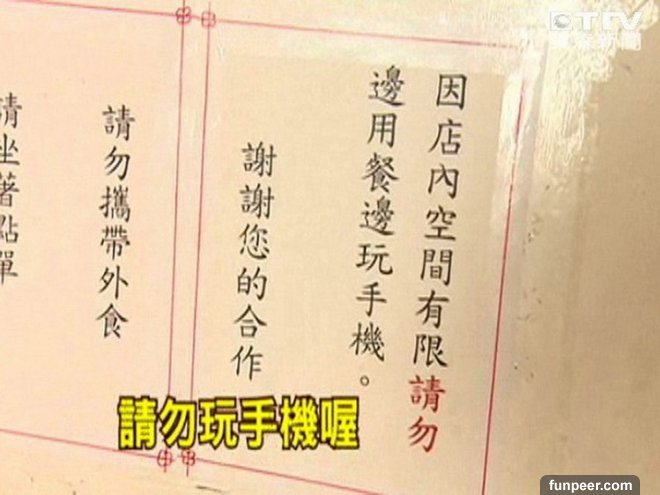 因店內空間有限請勿
邊用餐邊玩手機。
謝謝您的合作
請勿攜帶外食
請坐著點單
請勿玩手機喔
ETTV
東森新聞
funpeer.com